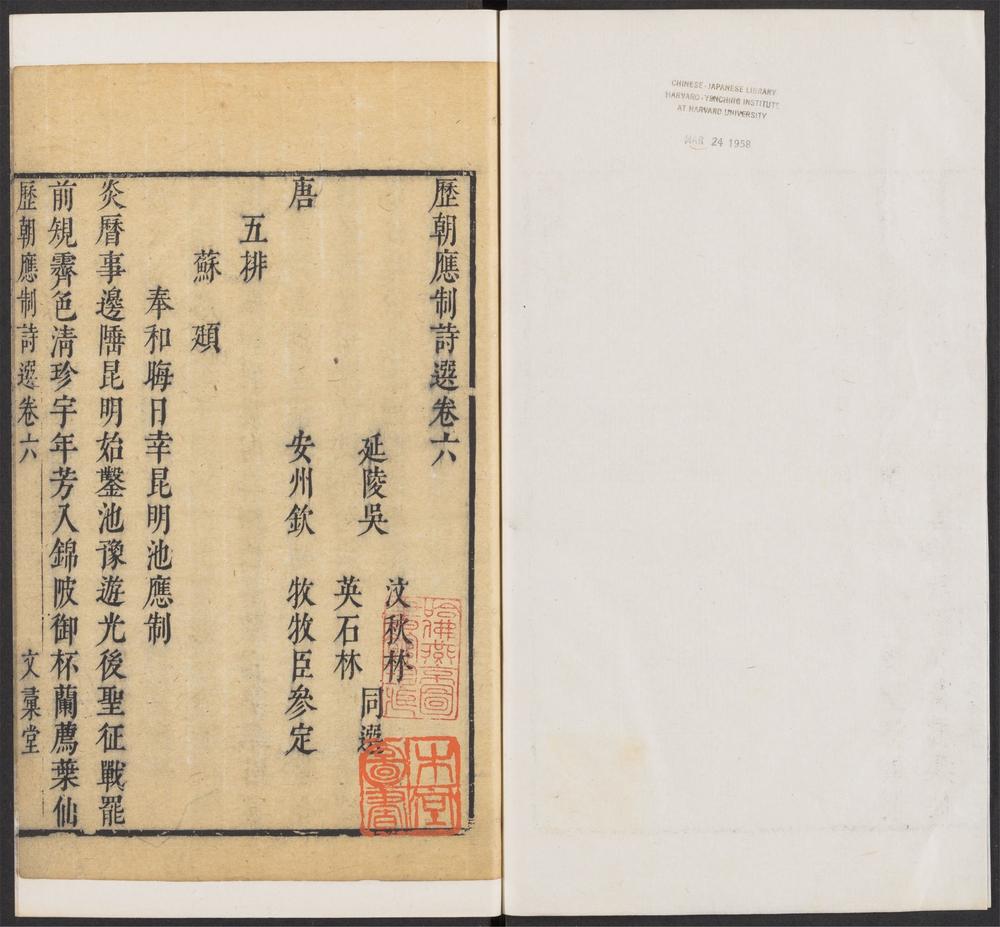 CHINESE-JAPANESE LIBRARY
HARVARD-YENCHING INSTITUTE
AT HARVARD UNIVERSITY
MAR 24 1958
歷朝應制詩選卷六
汶秋林
延陵吳 同選
英石林
唐 安州欽 牧牧臣參定
五排
蘇 頲
奉和晦日幸昆明池應制
炎曆事邊陲昆明始鑿池豫遊光後聖征戰罷
前䂓霽色清珍宇年芳入錦陂御杯蘭薦葉仙
歷朝應制詩選卷六 文 堂